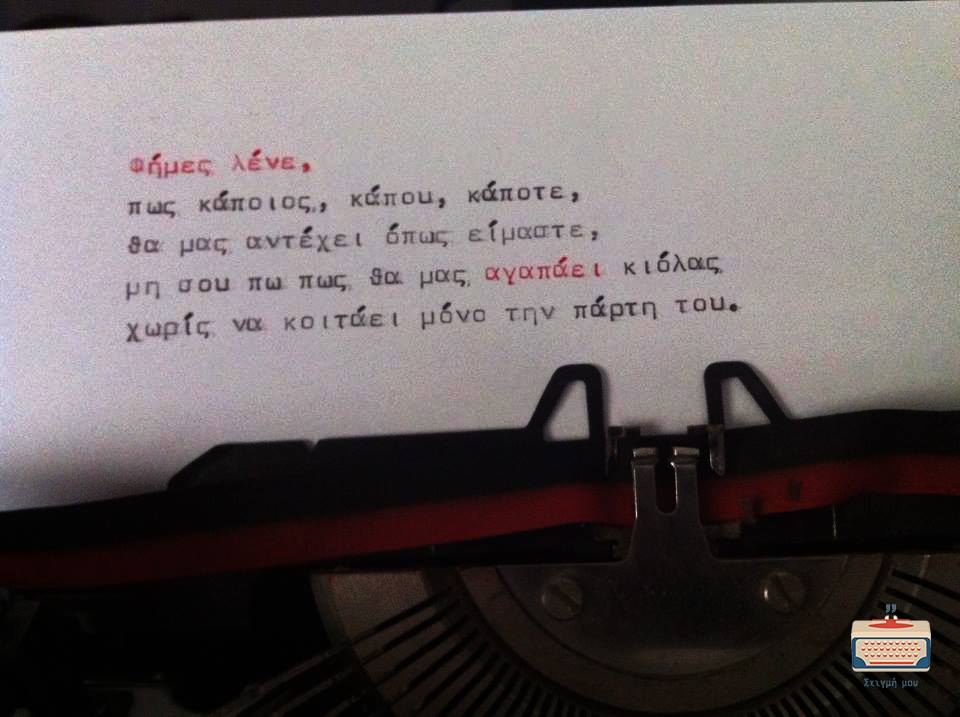 Φήμες λένε,
πως κάποιος, κάπου, κάποτε,
θα μας αντέχει όπως είμαστε,
μη σου πω πως θα μας αγαπάει κιόλας
χωρίς να κοιτάει μόνο την πάρτη του.
Στιγμή μου